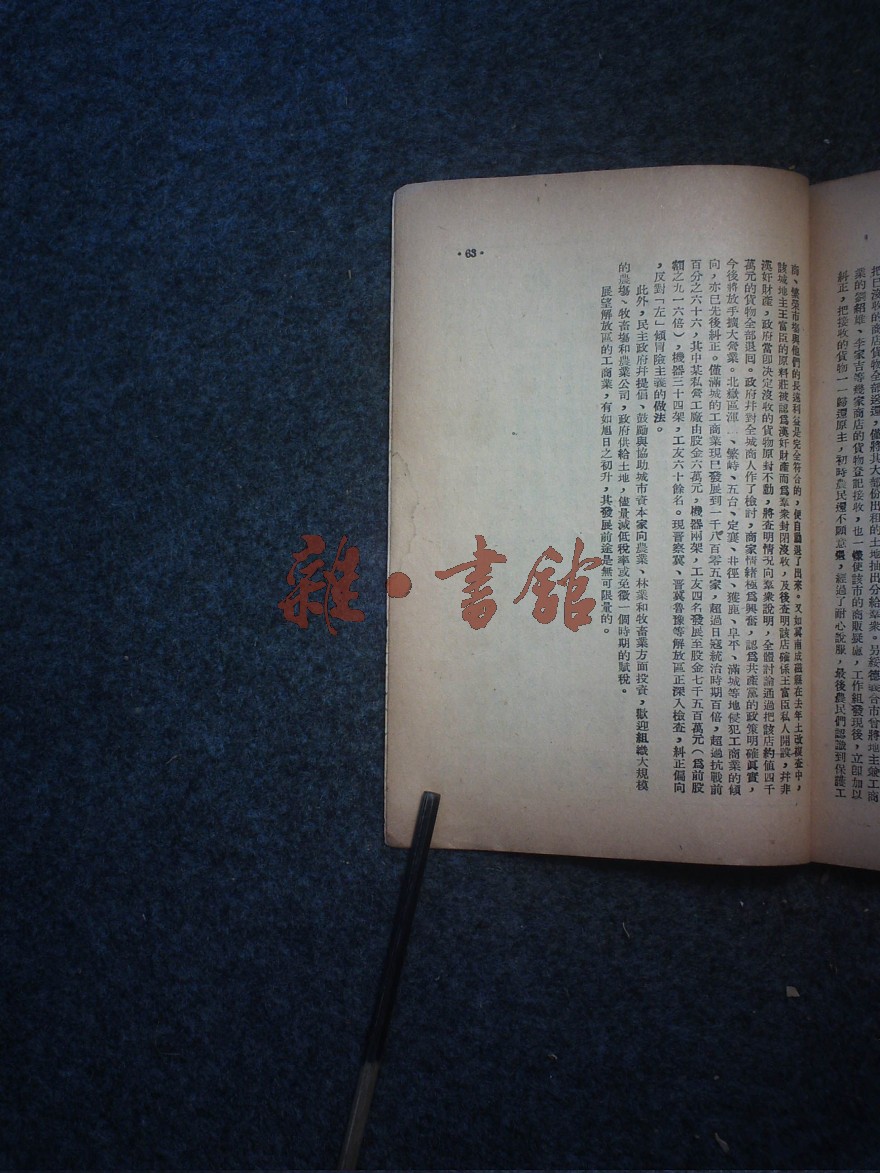 把已沒收的商店貨物全部送還，僅將其大部份出租的土地抽出分給羣衆。另綏德義合市曾將地主兼工商
業的劉紹雄、李家吉等幾家商店的貨物登記接收，也一樣使該市的商販疑慮，工作組發現後，立即加以
糾正，把接收的貨物一一歸還原主，初時農民還不願意退，經過了耐心說服，最後農民們認識到保護工
商、繁榮市場與他們的長遠利益是完全符合的，便自動退了出來。又如冀南成磁縣在去年土改複查中，
該城地主王富臣的原料莊被認爲漢奸財產而爲羣衆封閉沒收，及後查明該店確係王富臣私人開設，幷非
漢奸財產，政府當卽決定沒收的貨物原封不動，將查明情况向羣衆說明，全體討論通過把該店約值四千
萬元的貨物全部退回。政府幷對全城商人作了檢討，商家情緒極爲興奮，認爲共產黨的政策明確眞實，
今後將放手擴大營業。北嶽區渾、繁峙、五台、定襄、井徑、獲鹿、阜平、滿城等地侵犯工商業的傾
向，亦已先後糾正。僅滿城的工商業現已發展到一千八百零五家，超過日寇統治時期百倍，超過抗戰前
百分之六十六，其中某私營工廠由股金六萬元，機器兩架，工友四名發展至股金七千五百萬元（爲前股
額之九一六倍），機器三十四架，工友六十餘名。現晉察冀、晋冀魯豫等解放區正深入檢查，糾正偏向
，反對「左」傾冒險主義的做法。
此外，民主政府幷提倡、鼓勵與協助城市資本家向農業、林業和牧畜業方面投資，歡迎組織大規模
的農場、牧畜場和農業公司，政府供給土地，儘量減低稅率或免徵一個時期的賦稅。
展望解放區的工商業，有如旭日之初升，其發展前途是無可限量的。
·63·
雜·書館